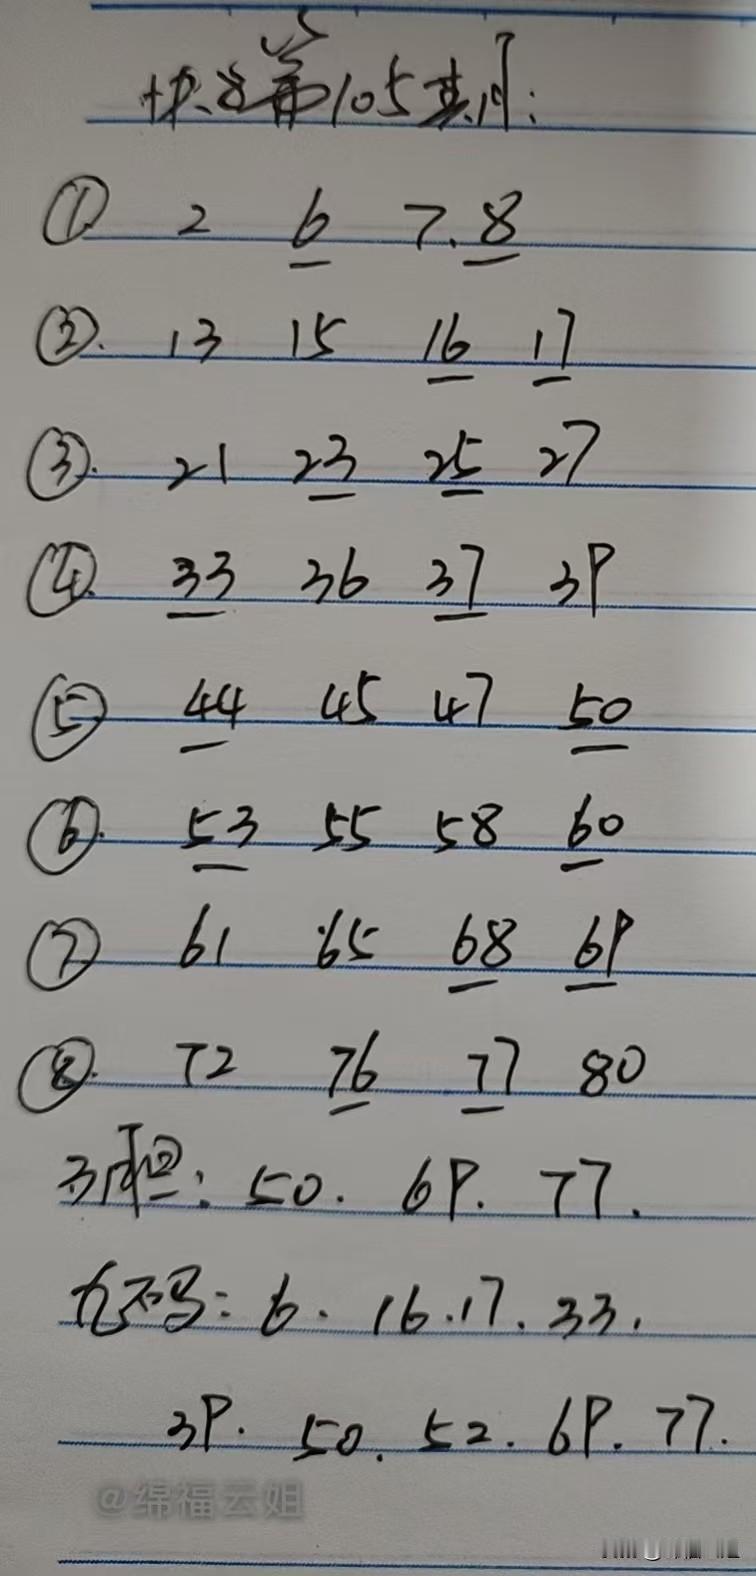 快乐第105期:
① 2 6 7. 8
②. 13 15 16 17
③. 21 23 25 27
④. 33 36 37 39
⑤ 44 45 47 50
⑥. 53 55 58 60
⑦ 61 65 68 69
⑧. 72 76 77 80
3胆: 50. 69. 77.
九码: 6. 16. 17. 33.
39. 50. 52. 69. 77.
@绵福云姐